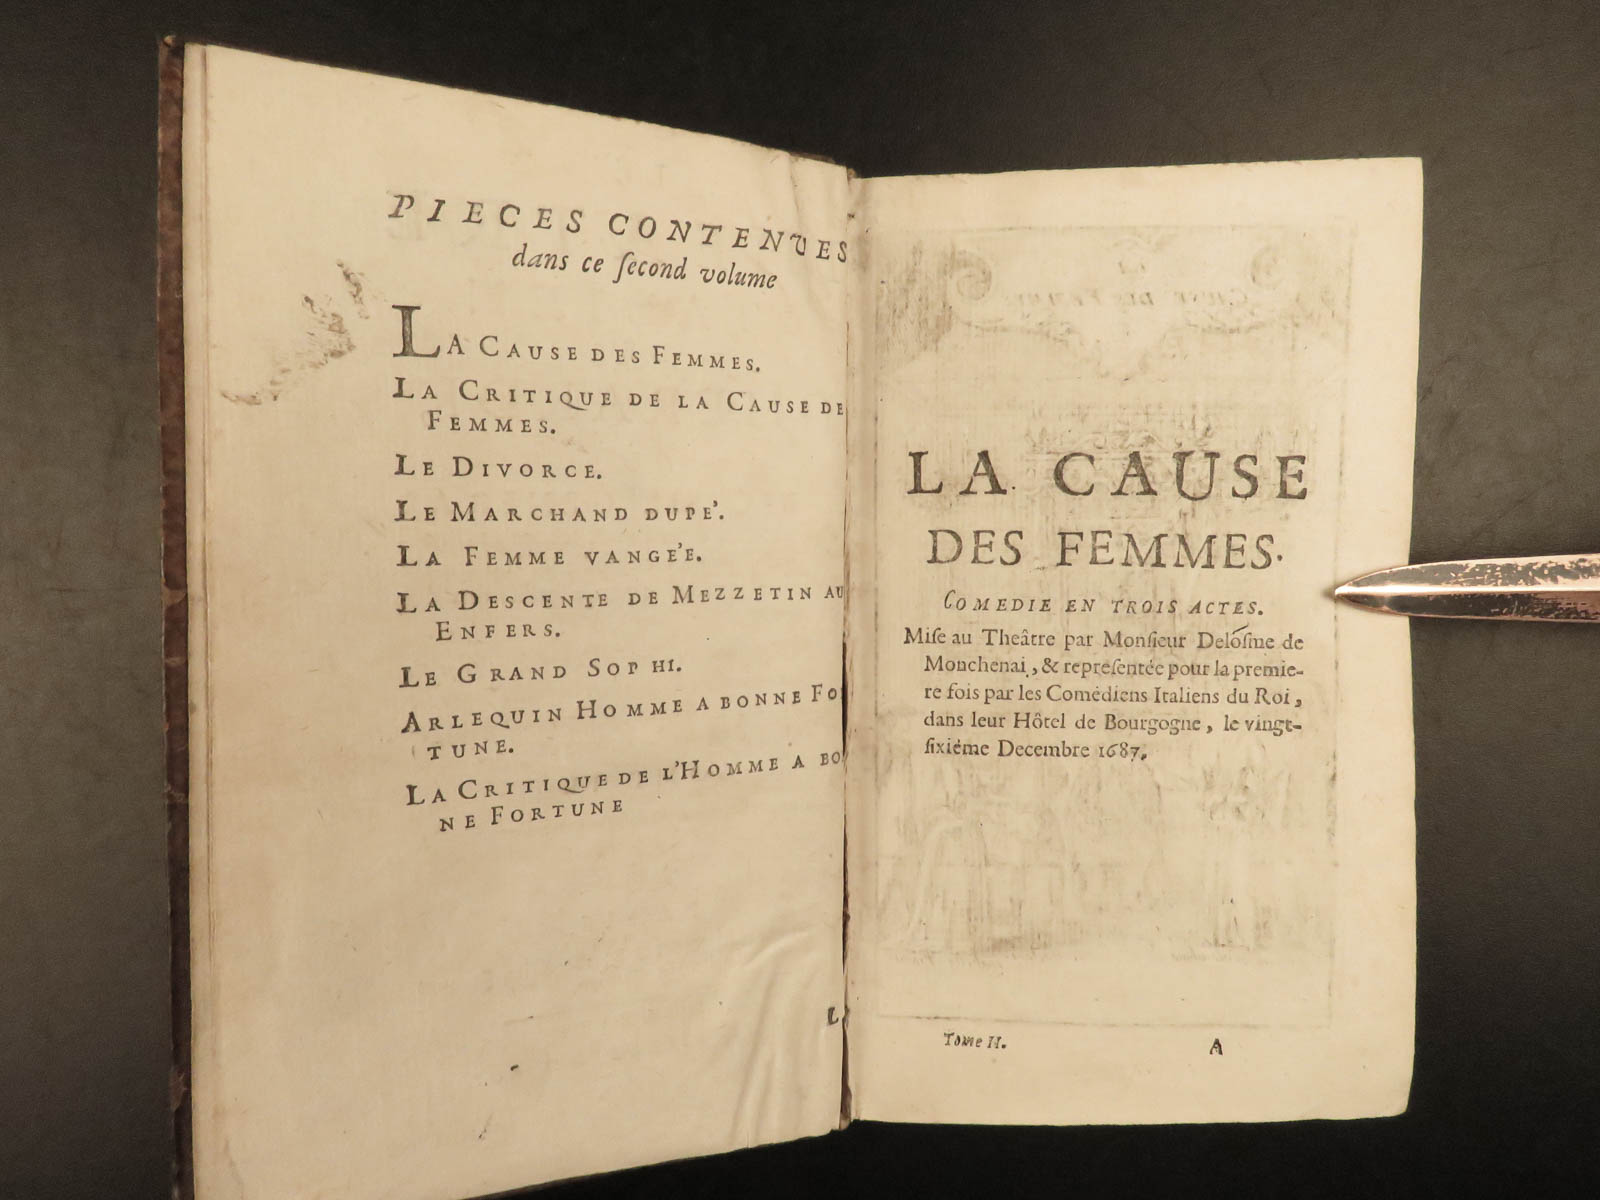 PIECES CONTENUES
dans ce ſecond volume
LA CAUSE DES FEMMES.
LA CRITIQUE DE LA CAUSE DE
FEMMES.
LE DIVORCE.
LE MARCHAND DUPE'.
LA FEMME VANGE'E.
LA DESCENTE DE MEZZETIN AU
ENFERS.
LE GRAND SOPHI.
ARLEQUIN HOMME A BONNE FO
TUNE.
LA CRITIQUE DE L'HOMME A BO
NE FORTUNE
L
LA CAUSE
DES FEMMES.
COMEDIE EN TROIS ACTES.
Miſe au Theâtre par Monſieur Deloſme de
Monchenai, & repreſentée pour la premie-
re fois par les Comédiens Italiens du Roi,
dans leur Hôtel de Bourgogne, le vingt-
ſixiéme Decembre 1687.
Tome II. A